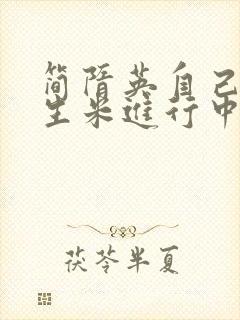 简隋英自己
生米進行中
茯苓半夏